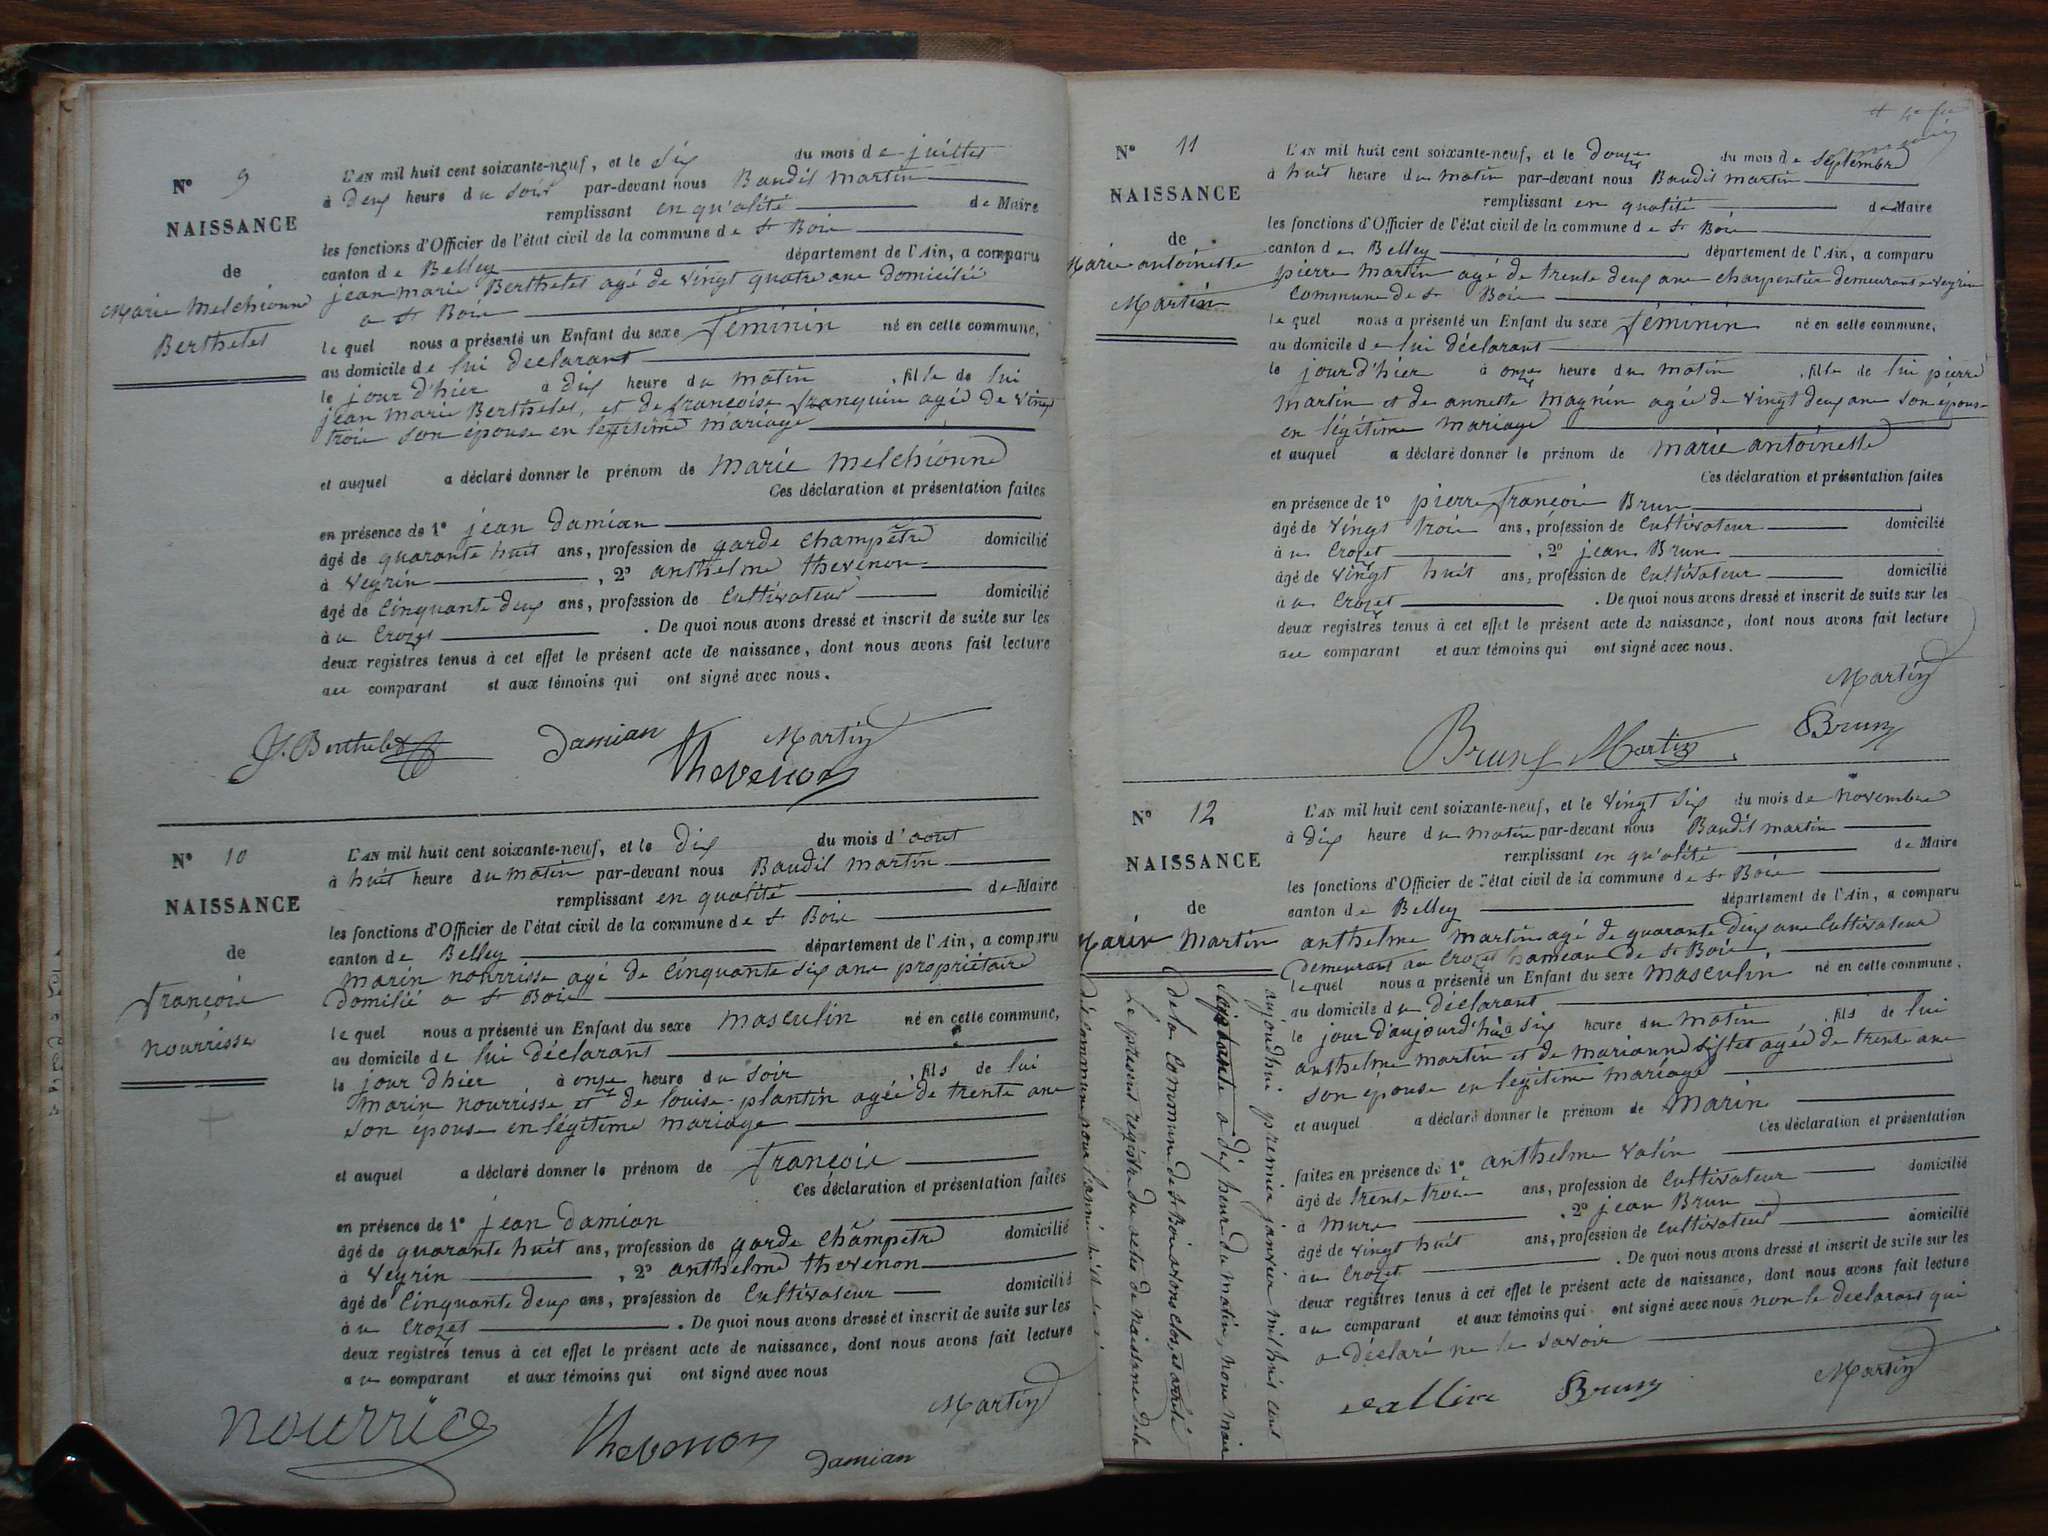 N° 9
NAISSANCE
de
Marie Melchionne
Berthelet
L'AN mil huit cent soixante-neuf, et le Six du mois de juillet
à Deux heure du Soir par-devant nous Baudil Martin
remplissant en qu'alité de Maire
les fonctions d'Officier de l'état civil de la commune de St Bois
canton de Belley département de l'Ain, a comparu
jean marie Berthelet agé de vingt quatre ans domicilié
a St Bois
le quel nous a présenté un Enfant du sexe féminin né en cette commune,
au domicile de lui déclarant
le jour d'hier à dix heure du matin , fille de lui
jean marie Berthelet, et de françoise franquin agée de vingt
trois son épouse en légitime mariage
et auquel a déclaré donner le prénom de marie melchionne
Ces déclaration et présentation faites
en présence de 1° jean Damian
âgé de quarante huit ans, profession de garde champêtre domicilié
à Veyrin , 2° anthelme thevenon
âgé de Cinquante deux ans, profession de Cultivateur domicilié
à u Crozet . De quoi nous avons dressé et inscrit de suite sur les
deux registres tenus à cet effet le présent acte de naissance, dont nous avons fait lecture
au comparant et aux témoins qui ont signé avec nous.
J. Berthelet Damian Martin
Thevenon
N° 10
NAISSANCE
de
françois
nourrisse
L'AN mil huit cent soixante-neuf, et le Dix du mois d'aout
à huit heure du matin par-devant nous Baudil Martin
remplissant en qualité de Maire
les fonctions d'Officier de l'état civil de la commune de St Bois
canton de Belley département de l'Ain, a comparu
Marin nourrisse agé de Cinquante Six ans propriétaire
domilié a St Bois
le quel nous a présenté un Enfant du sexe masculin né en cette commune,
au domicile de lui déclarant
le jour d'hier à onze heure du Soir , fils de lui
Marin nourrisse et de louise plantin agée de trente ans
son épouse en légitime mariage
et auquel a déclaré donner le prénom de françois
Ces déclaration et présentation faites
en présence de 1° jean Damian
âgé de quarante huit ans, profession de garde Champêtre domicilié
à Veyrin , 2° anthelme thevenon
âgé de Cinquante deux ans, profession de Cultivateur domicilié
à u Crozet . De quoi nous avons dressé et inscrit de suite sur les
deux registres tenus à cet effet le présent acte de naissance, dont nous avons fait lecture
au comparant et aux témoins qui ont signé avec nous
Martin
nourrice Thevenon Damian
N° 11
NAISSANCE
de
Marie antoinette
Martin
L'AN mil huit cent soixante-neuf, et le Douze du mois de Septembre
à huit heure du matin par-devant nous Baudil Martin
remplissant en qualité de Maire
les fonctions d'Officier de l'état civil de la commune de St Bois
canton de Belley département de l'Ain, a comparu
pierre Martin agé de trente deux ans charpentier demeurant a Veyrin
Commune de St Bois
le quel nous a présenté un Enfant du sexe féminin né en cette commune,
au domicile de lui déclarant
le jour d'hier à onze heure du matin , fille de lui pierre
Martin et de annette Magnin agée de vingt deux ans son épouse
en légitime mariage
et auquel a déclaré donner le prénom de marie antoinette
Ces déclaration et présentation faites
en présence de 1° pierre françois Brun
âgé de vingt trois ans, profession de Cultivateur domicilié
à u Crozet , 2° jean Brun
âgé de vingt huit ans, profession de Cultivateur domicilié
à u Crozet . De quoi nous avons dressé et inscrit de suite sur les
deux registres tenus à cet effet le présent acte de naissance, dont nous avons fait lecture
au comparant et aux témoins qui ont signé avec nous.
Martin
Brun Martin Brun
N° 12
NAISSANCE
de
Marin Martin
L'AN mil huit cent soixante-neuf, et le vingt Six du mois de novembre
à Dix heure du matin par-devant nous Baudil Martin
remplissant en qu'alité de Maire
les fonctions d'Officier de l'état civil de la commune de St Bois
canton de Belley département de l'Ain, a comparu
anthelme Martin agé de quarante deux ans Cultivateur
demeurant au Crozet hameau de St Bois
le quel nous a présenté un Enfant du sexe masculin né en cette commune,
au domicile du Déclarant
le jour d'aujourd'hui à Six heure du matin , fils de lui
anthelme Martin et de Marianne Siftet agée de trente ans
son épouse en légitime mariage
et auquel a déclaré donner le prénom de Marin
Ces déclaration et présentation
faites en présence de 1° anthelme
âgé de trente trois ans, profession de Cultivateur domicilié
à Murs , 2° jean Brun
âgé de vingt huit ans, profession de Cultivateur domicilié
à u Crozet . De quoi nous avons dressé et inscrit de suite sur les
deux registres tenus à cet effet le présent acte de naissance, dont nous avons fait lecture
au comparant et aux témoins qui ont signé avec nous non le declarant qui
a déclaré ne le savoir
Brun Martin
aujourdhui premier janvier mil huit cent
soixante a dix heure du matin, nous maire
de la Commune de St Bois avons clos, et arrêté
Le present registre des actes de naissance de la